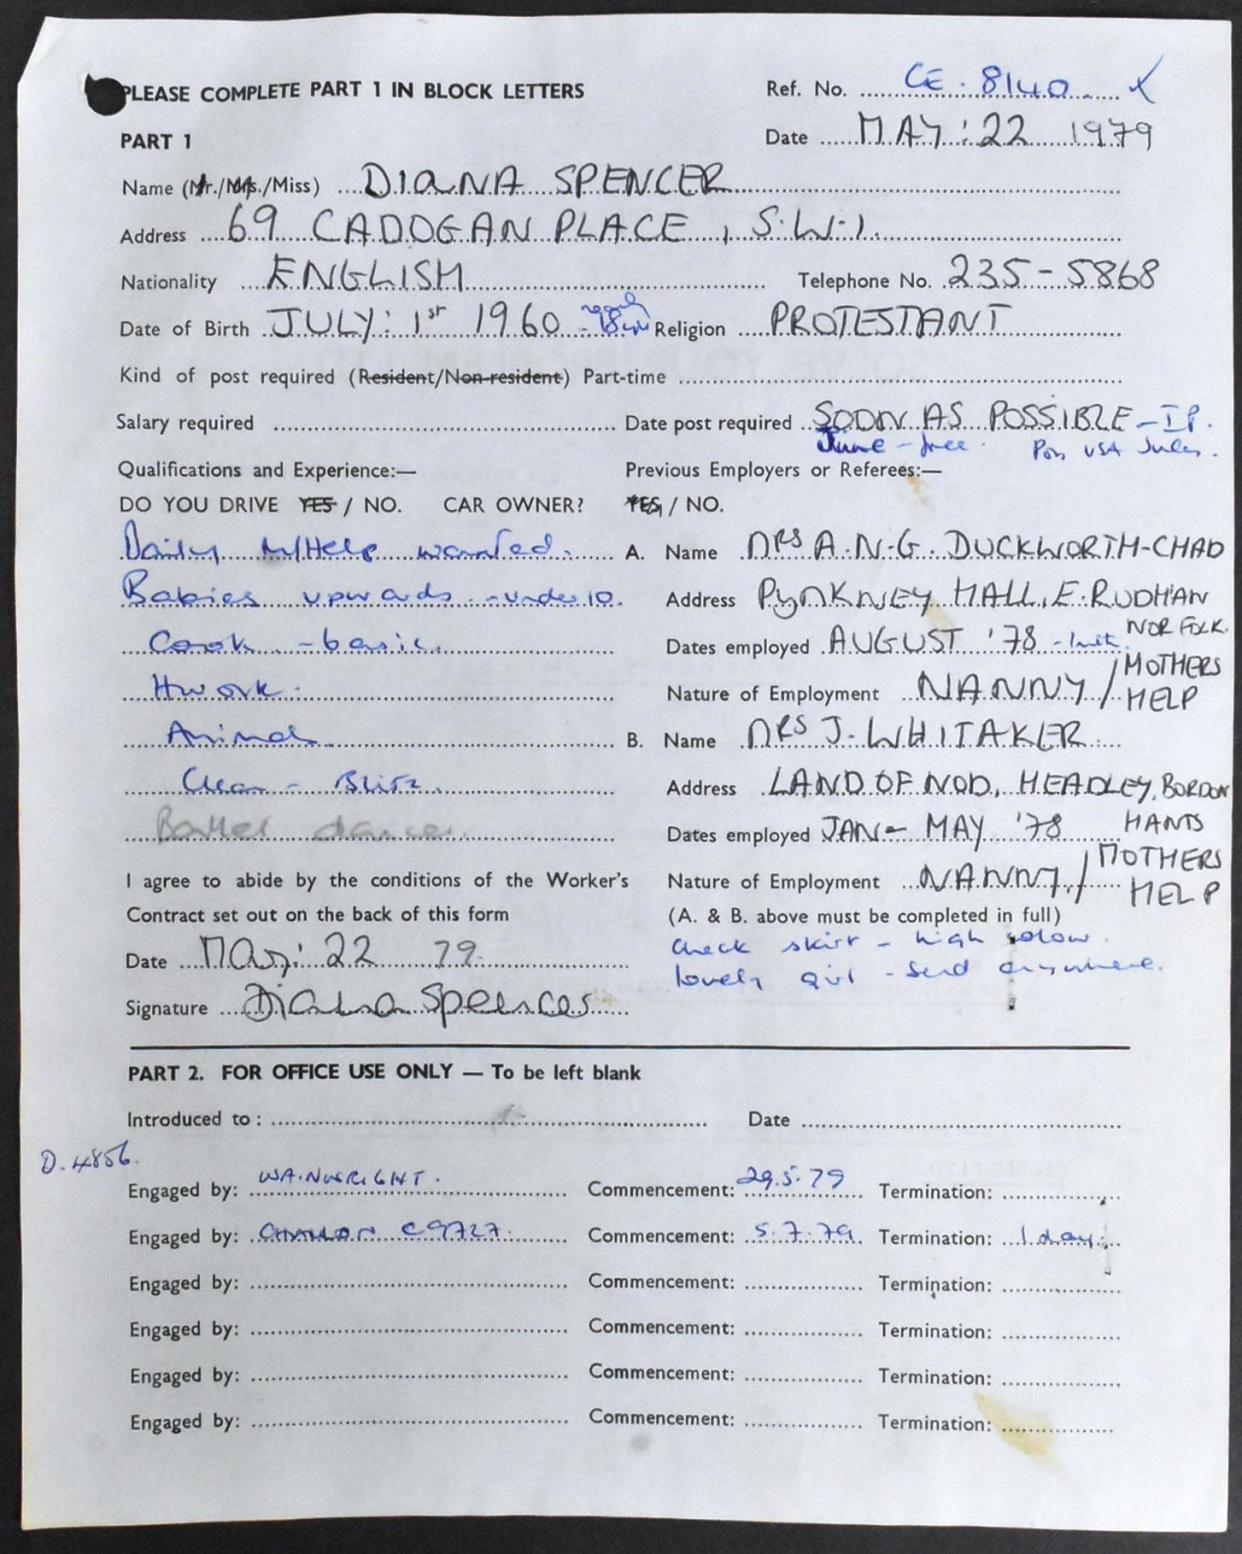 PLEASE COMPLETE PART 1 IN BLOCK LETTERS
Ref. No. CE. 8140
PART 1
Date MAY: 22 1979
Name (Mr./Mrs./Miss) DIANA SPENCER
Address 69 CADOGAN PLACE, S.W.1.
Nationality ENGLISH Telephone No. 235-5868
Date of Birth JULY: 1st 1960 Religion PROTESTANT
Kind of post required (Resident/Non-resident) Part-time
Salary required Date post required SOON AS POSSIBLE
June - free. USA
Qualifications and Experience:— Previous Employers or Referees:—
DO YOU DRIVE YES / NO. CAR OWNER? YES / NO.
Daily M/Help wanted. A. Name MRS A.N.G. DUCKWORTH-CHAD
Babies upwards - under 10. Address PYNKNEY HALL, E. RUDHAN
NORFOLK.
Cook - basic. Dates employed AUGUST '78
Hwork. Nature of Employment NANNY / MOTHERS HELP
Animals B. Name MRS J. WHITAKER
Clean - Blitz. Address LAND OF NOD, HEADLEY, BORDON
HANTS
Ballet dance. Dates employed JAN - MAY '78
I agree to abide by the conditions of the Worker's Nature of Employment NANNY / MOTHERS HELP
Contract set out on the back of this form (A. & B. above must be completed in full)
check skirt - high
Date May: 22 79.
lovely girl - send anywhere.
Signature Diana Spencer
PART 2. FOR OFFICE USE ONLY — To be left blank
Introduced to: Date
D. 4856.
Engaged by: WAINWRIGHT. Commencement: 29.5.79 Termination:
Engaged by: C9727. Commencement: 5.7.79 Termination: 1 day.
Engaged by: Commencement: Termination:
Engaged by: Commencement: Termination:
Engaged by: Commencement: Termination:
Engaged by: Commencement: Termination: